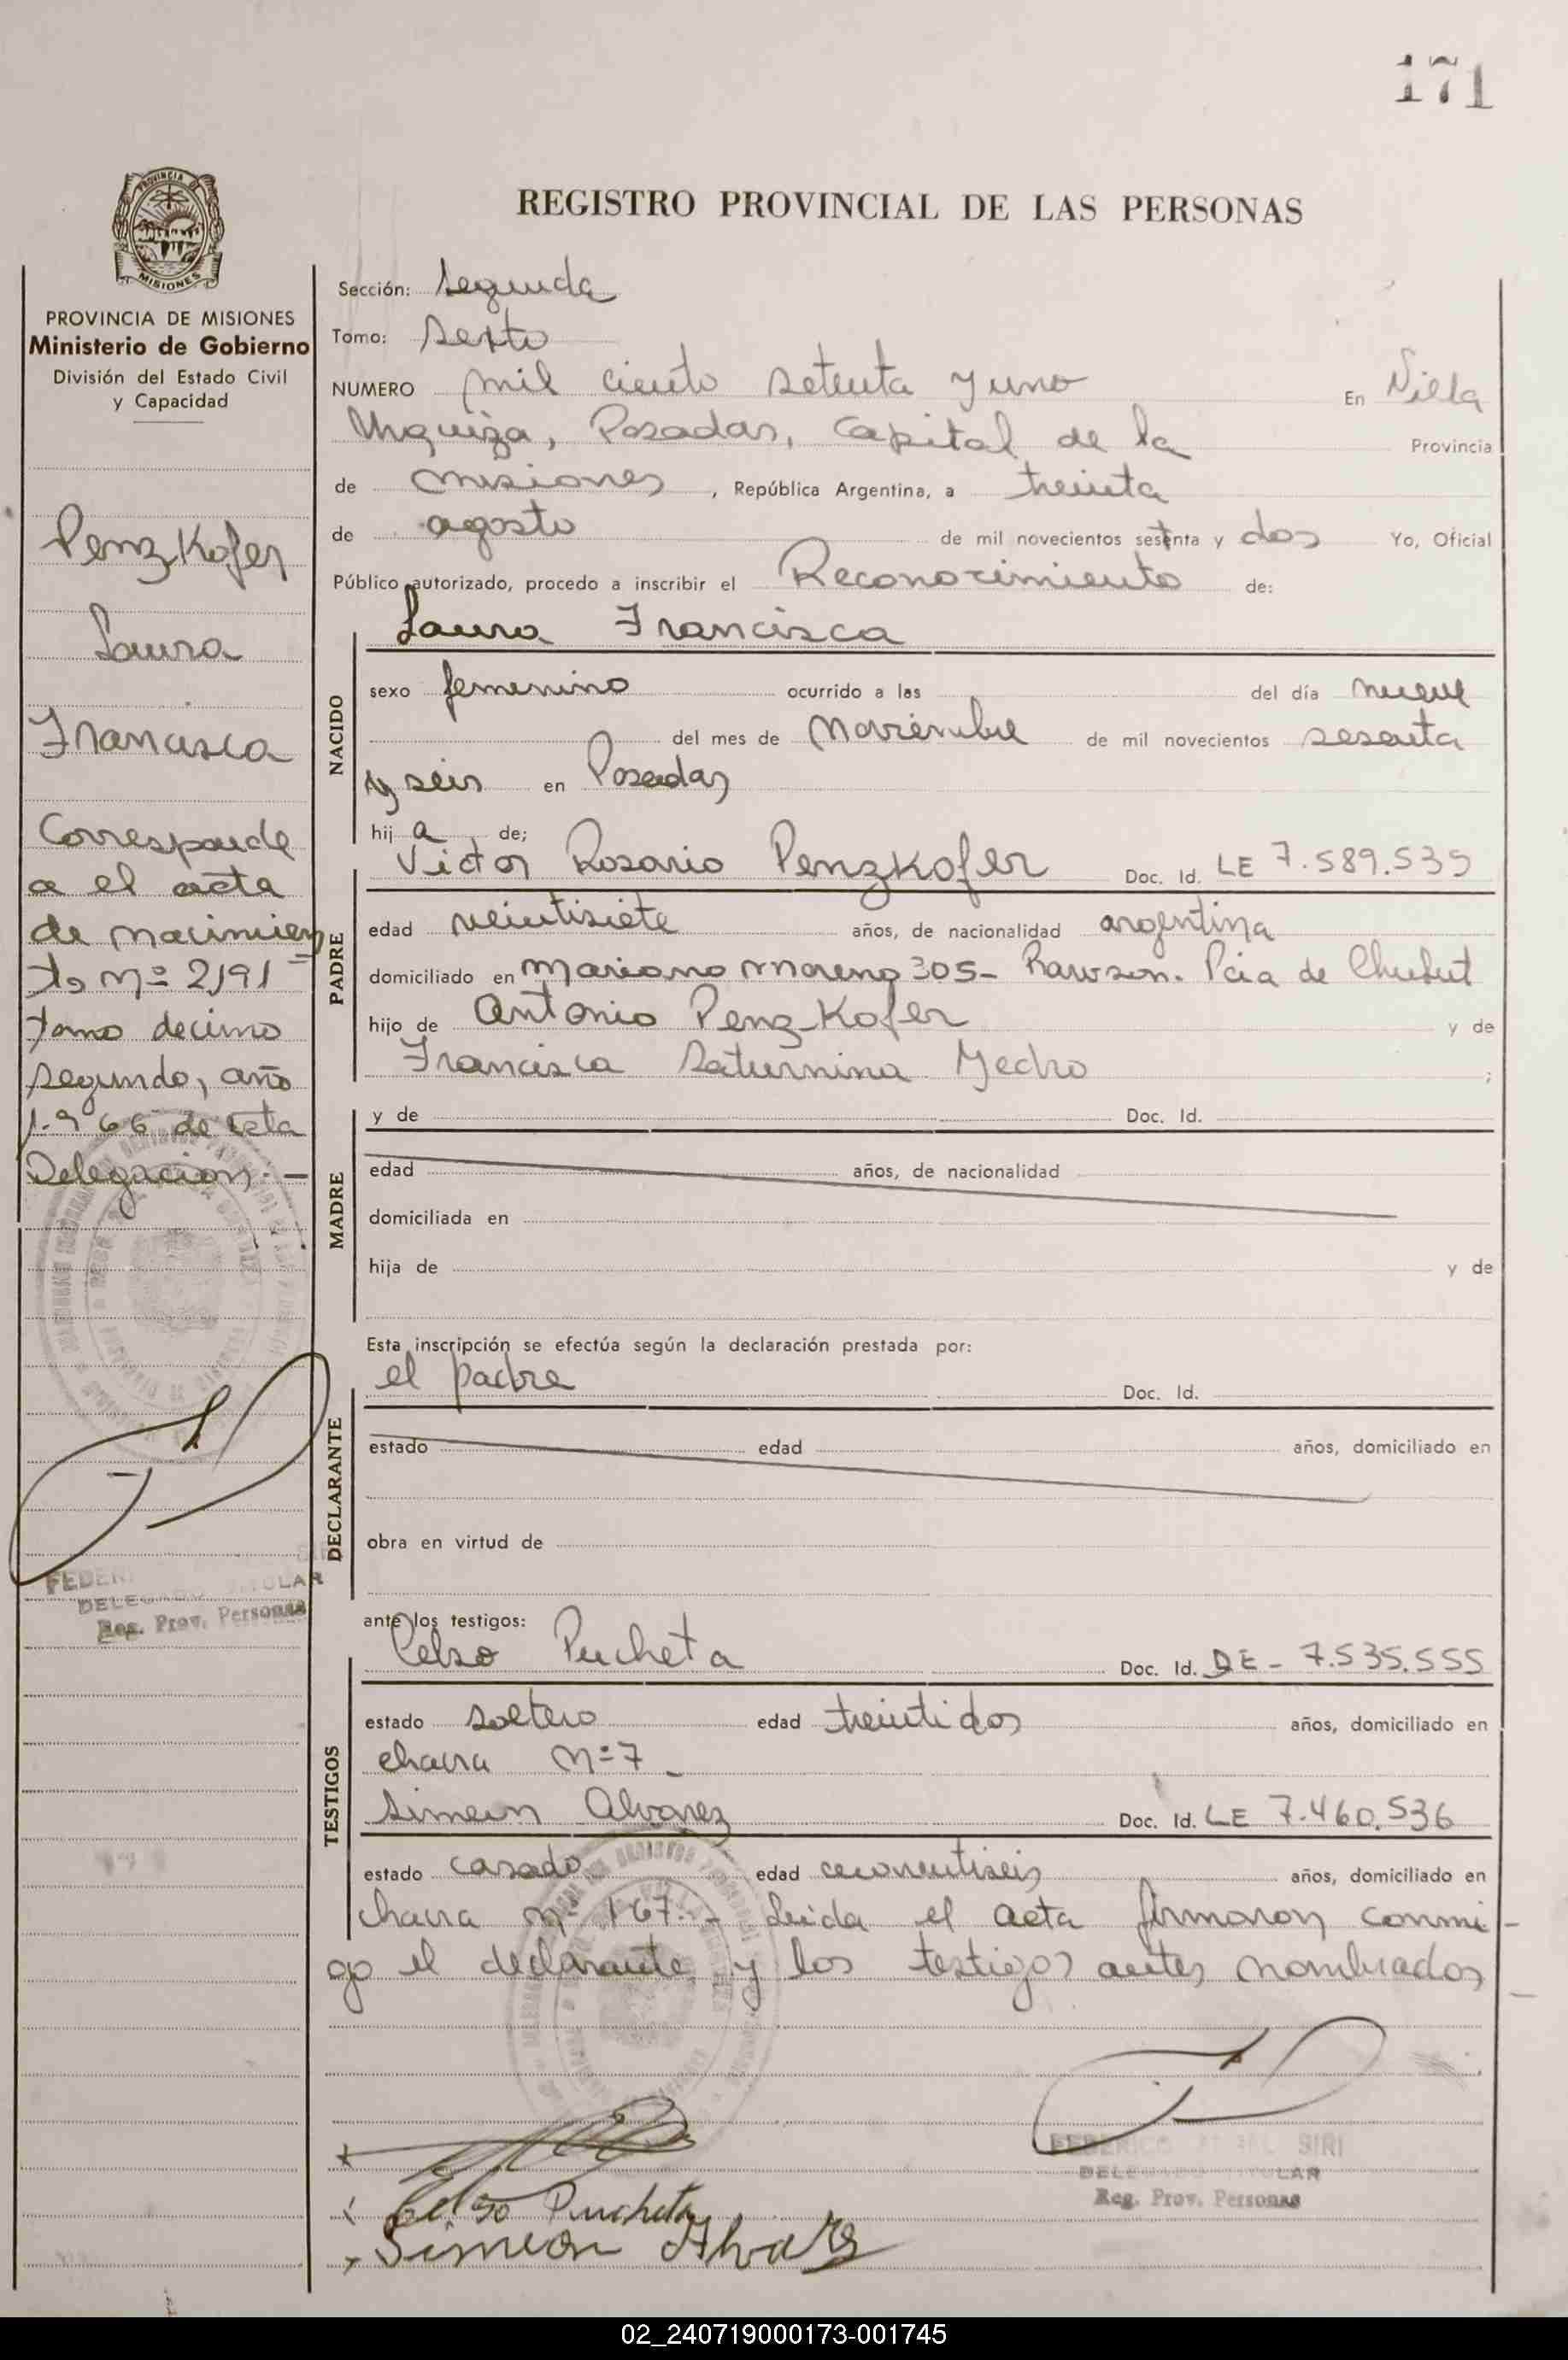 171
REGISTRO PROVINCIAL DE LAS PERSONAS
PROVINCIA DE MISIONES
Ministerio de Gobierno
División del Estado Civil
y Capacidad
Penzkofer
Laura
Francisca
Corresponde
a el acta
de nacimien
to Nº 2191
tomo decimo
segundo, año
1.966 de esta
Delegacion.-
DELEGADO TITULAR
Reg. Prov. Personas
Sección: Segunda
Tomo: Sexto
NUMERO mil ciento setenta y uno En Villa
Urquiza, Posadas, Capital de la Provincia
de Misiones, República Argentina, a treinta
de agosto de mil novecientos setenta y dos Yo, Oficial
Público autorizado, procedo a inscribir el Reconocimiento de:
Laura Francisca
NACIDO
sexo femenino ocurrido a las del día nueve
del mes de Noviembre de mil novecientos sesenta
y seis en Posadas
hij a de;
PADRE
Victor Rosario Penzkofer Doc. Id. LE 7.589.535
edad veintisiete años, de nacionalidad argentina
domiciliado en Mariano Moreno 305- Rawson. Pcia de Chubut
hijo de Antonio Penzkofer y de
Francisca Saturnina ;
MADRE
y de Doc. Id.
edad años, de nacionalidad
domiciliada en
hija de y de
Esta inscripción se efectúa según la declaración prestada por:
DECLARANTE
el padre Doc. Id.
estado edad años, domiciliado en
obra en virtud de
ante los testigos:
TESTIGOS
Celso Pucheta Doc. Id. DE - 7.535.555
estado soltero edad treintidos años, domiciliado en
chacra Nº 7 -
Simeon Alvarez Doc. Id. LE 7.460.536
estado casado edad años, domiciliado en
chacra Nº 167.- Leida el acta firmaron conmi-
go el declarante y los testigos antes nombrados
Celso Pucheta
Simeon Alvarez
FEDERICO SIRI
DELEGADO TITULAR
Reg. Prov. Personas
02_240719000173-001745